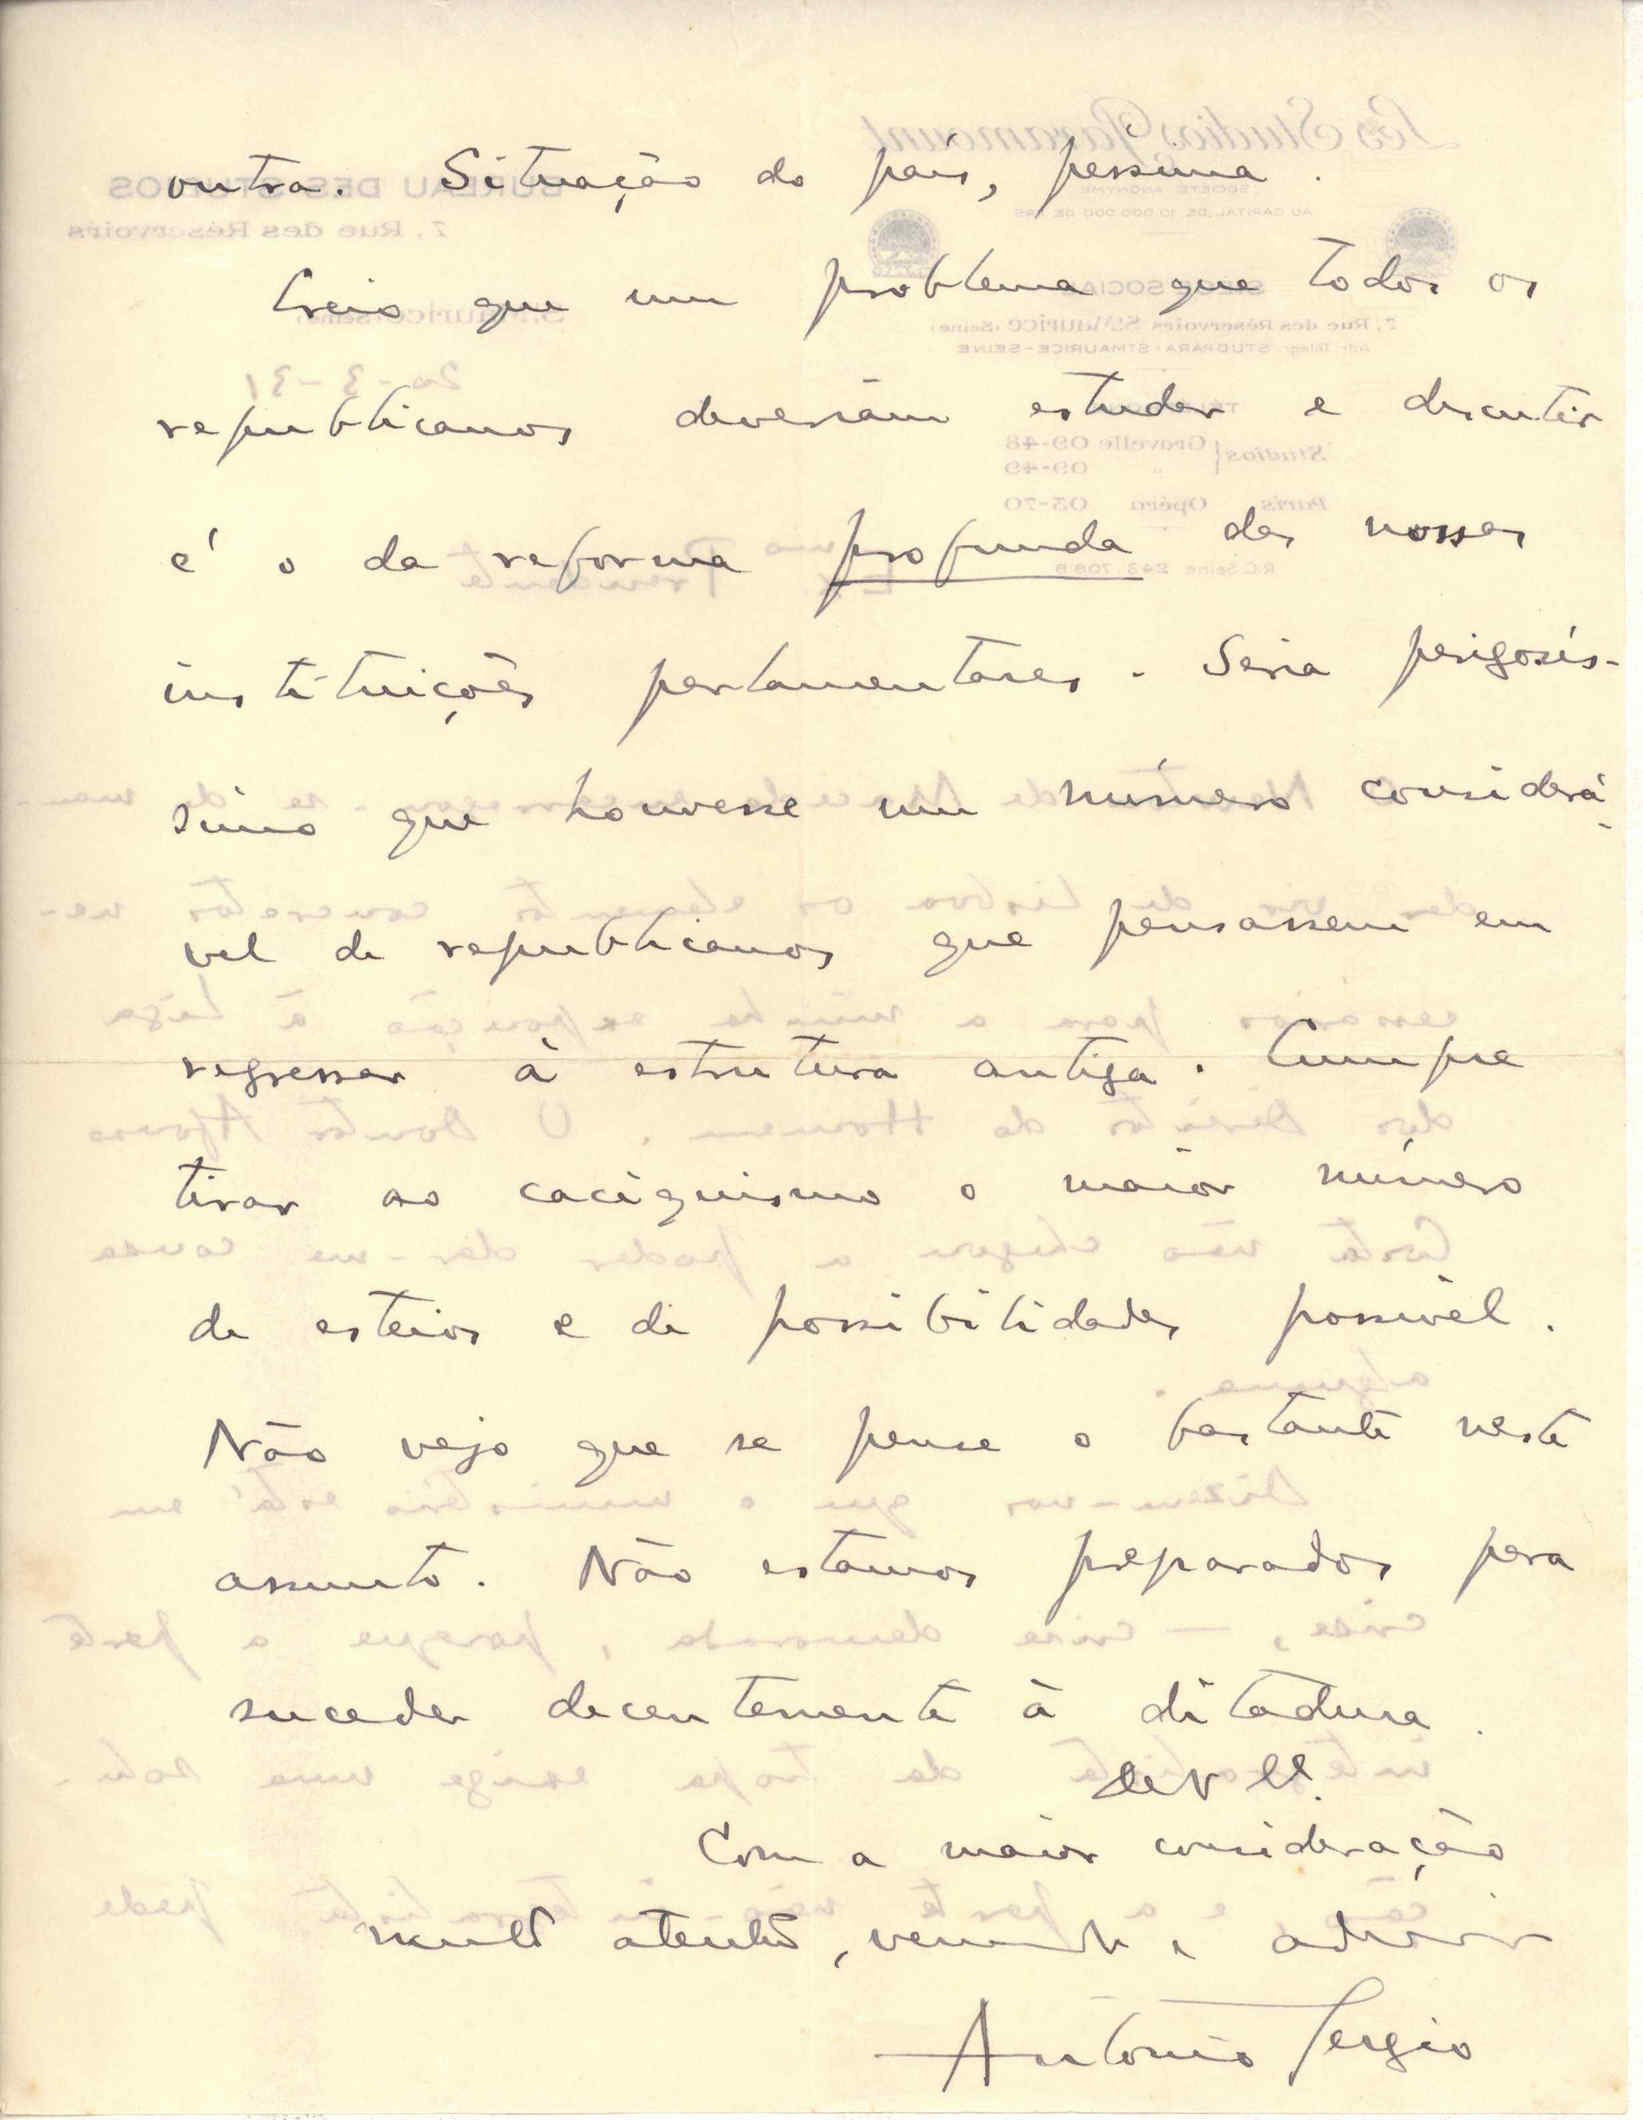 outra. Situação do país, péssima.
Creio que um problema que todos os
republicanos deveriam estudar e discutir
é o da reforma profunda das nossas
instituições parlamentares. Seria perigosís-
simo que houvesse um número considerá-
vel de republicanos que pensassem em
regressar à estrutura antiga. Cumpre
tirar ao caciquismo o maior número
de esteios e de possibilidades possível.
Não vejo que se pense o bastante neste
assunto. Não estamos preparados pera
suceder decentemente à ditadura.
Com a maior consideração
muito atento, e
António Sergio